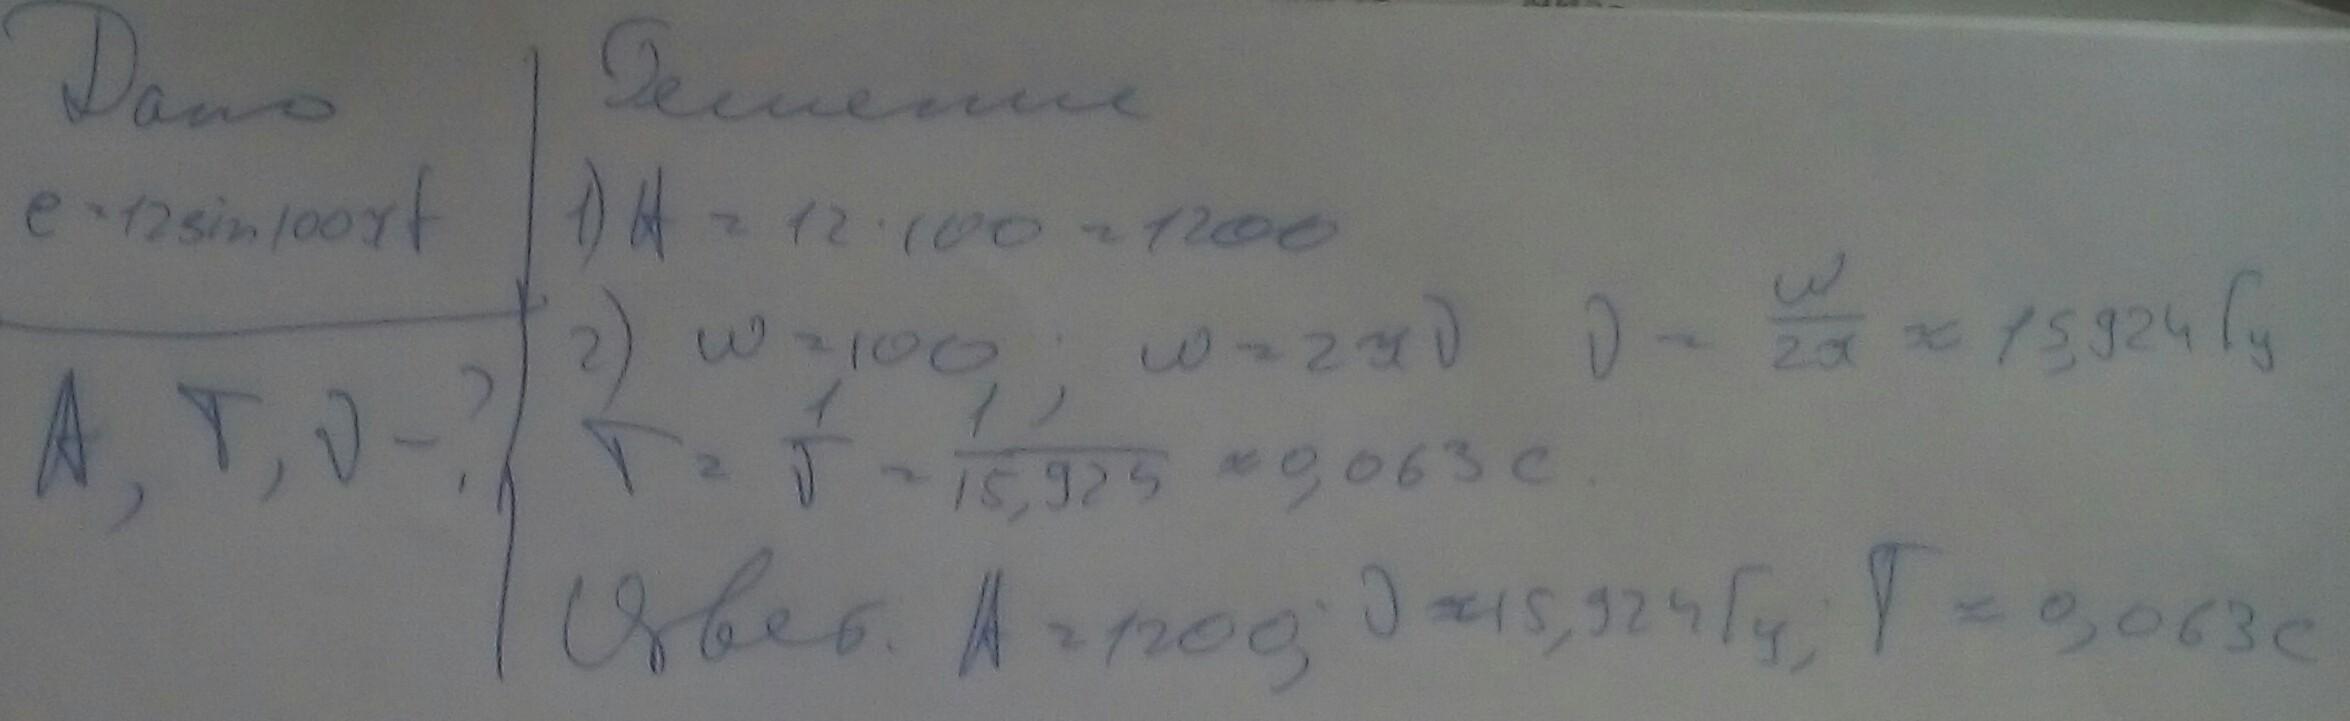 Дано
e=12sin100πt
A, T, ν-?
Решение
1) A = 12·100 = 1200
2) ω=100; ω=2πν ν = ω/2π ≈ 15,924 Гц
T = 1/ν = 1/15,924 ≈ 0,063 с.
Ответ. A=1200; ν≈15,924 Гц; T≈0,063 с